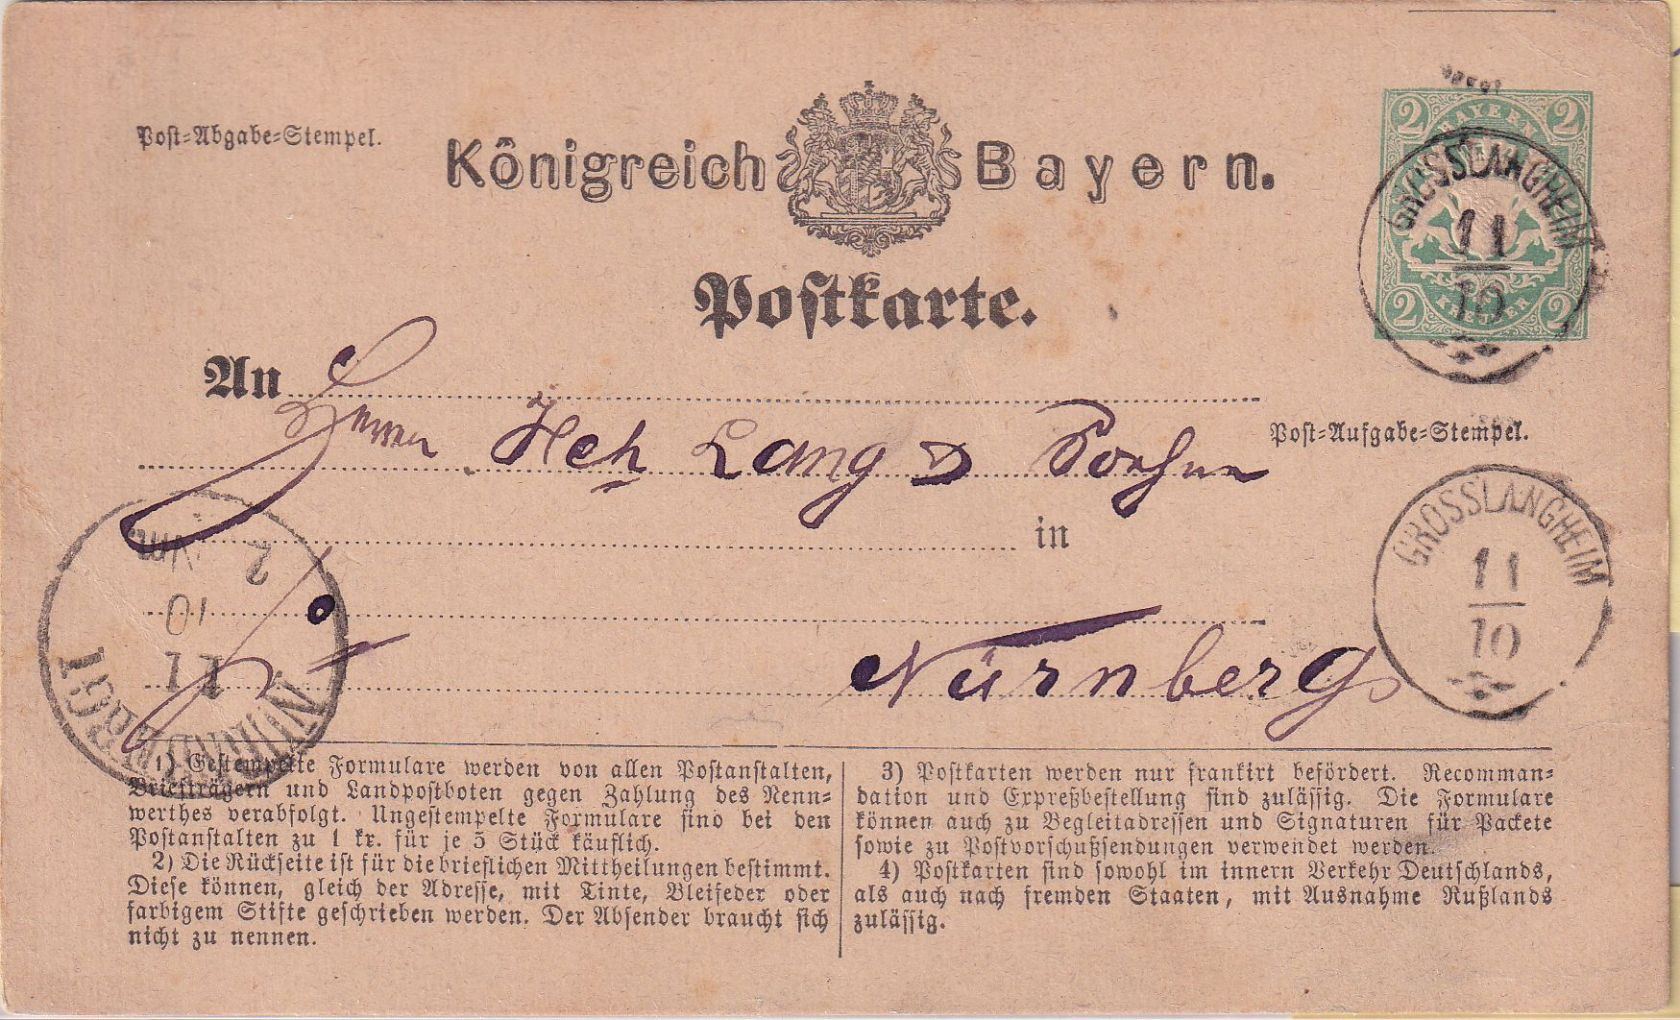 Post-Abgabe-Stempel.
Königreich Bayern.
2 BAYERN 2
2 KREUZER 2
GROSSLANGHEIM
11
10
Postkarte.
An Herrn Hch Lang &
in
Nürnberg
Post-Aufgabe-Stempel.
GROSSLANGHEIM
11
10
NÜRNBERG I
11
10
2 NM.
1) Gestempelte Formulare werden von allen Postanstalten,
Briefträgern und Landpostboten gegen Zahlung des Nenn-
werthes verabfolgt. Ungestempelte Formulare sind bei den
Postanstalten zu 1 kr. für je 5 Stück käuflich.
2) Die Rückseite ist für die brieflichen Mittheilungen bestimmt.
Diese können, gleich der Adresse, mit Tinte, Bleifeder oder
farbigem Stifte geschrieben werden. Der Absender braucht sich
nicht zu nennen.
3) Postkarten werden nur frankirt befördert. Recomman-
dation und Expreßbestellung sind zulässig. Die Formulare
können auch zu Begleitadressen und Signaturen für Packete
sowie zu Postvorschußsendungen verwendet werden.
4) Postkarten sind sowohl im innern Verkehr Deutschlands,
als auch nach fremden Staaten, mit Ausnahme Rußlands
zulässig.